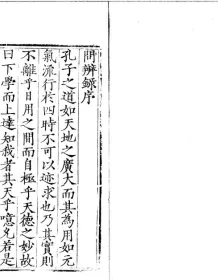 問辨錄序
孔子之道如天地之廣大而其為用如元
氣流行於四時不可以迹求也乃其實則
不離乎日用之間而自極乎天德之妙故
曰下學而上達知我者其天乎噫允若是